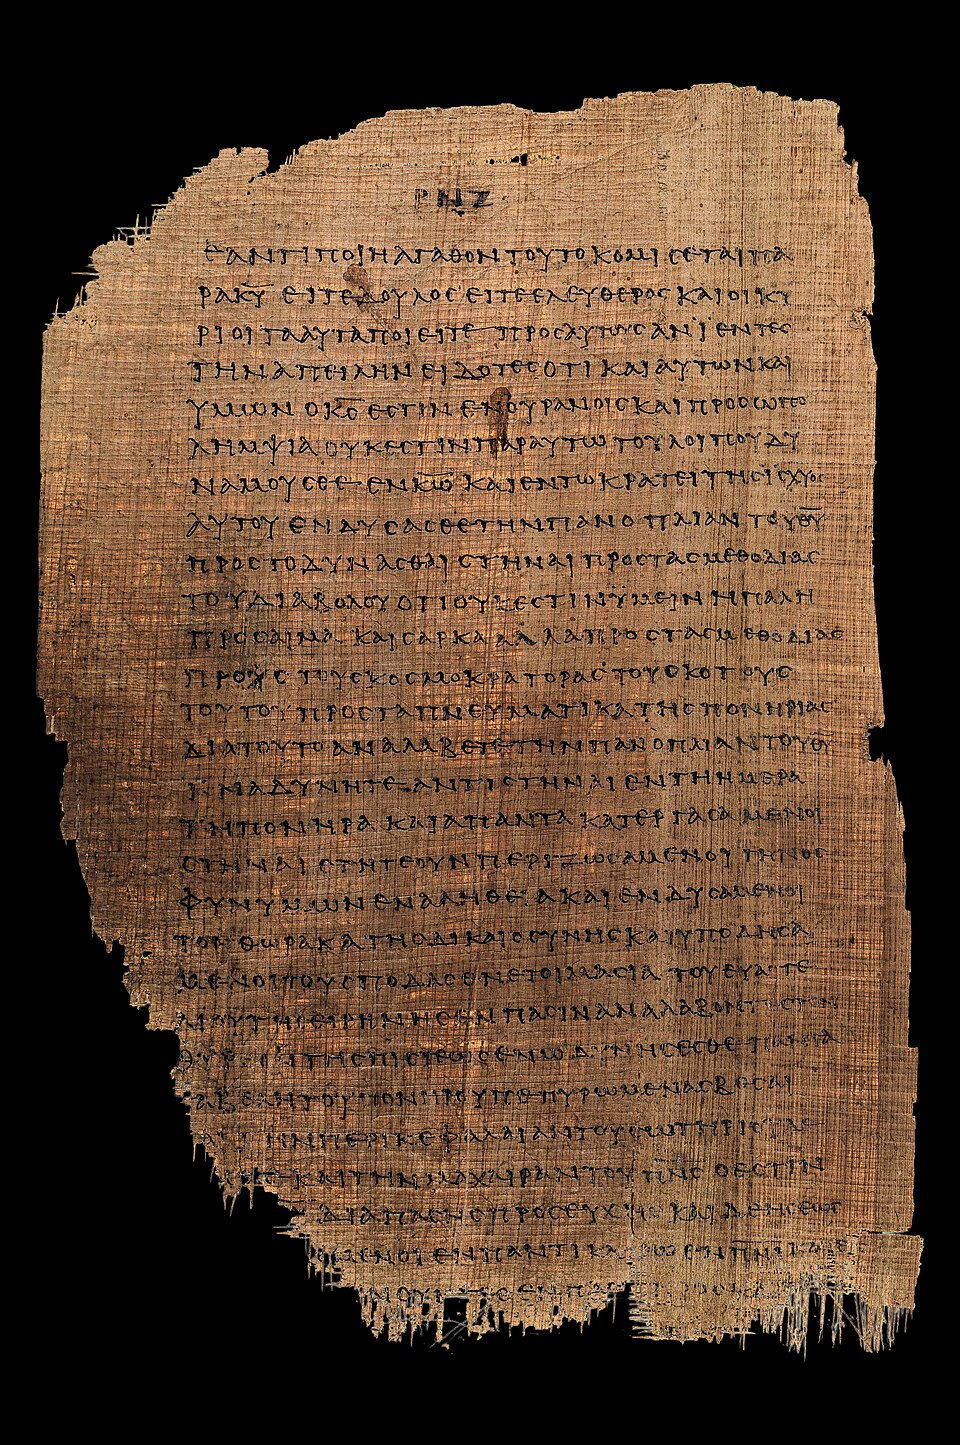 ΡΝΖ
ΕΑΝ ΤΙ ΠΟΙΗ ΑΓΑΘΟΝ ΤΟΥΤΟ ΚΟΜΙCΕΤΑΙ ΠΑ
ΡΑ Κ̅Υ̅ ΕΙΤΕ ΔΟΥΛΟC ΕΙΤΕ ΕΛΕΥΘΕΡΟC ΚΑΙ ΟΙ ΚΥ
ΡΙΟΙ ΤΑ ΑΥΤΑ ΠΟΙΕΙΤΕ ΠΡΟC ΑΥΤΟΥC ΑΝΙΕΝΤΕC
ΤΗΝ ΑΠΕΙΛΗΝ ΕΙΔΟΤΕC ΟΤΙ ΚΑΙ ΑΥΤΩΝ ΚΑΙ
ΥΜΩΝ Ο Κ̅C̅ ΕCΤΙΝ ΕΝ ΟΥΡΑΝΟΙC ΚΑΙ ΠΡΟCΩΠΟ
ΛΗΜΨΙΑ ΟΥΚ ΕCΤΙΝ ΠΑΡ ΑΥΤΩ ΤΟΥ ΛΟΙΠΟΥ ΔΥ
ΝΑΜΟΥCΘΕ ΕΝ Κ̅Ω̅ ΚΑΙ ΕΝ ΤΩ ΚΡΑΤΕΙ ΤΗC ΙCΧΥΟC
ΑΥΤΟΥ ΕΝΔΥCΑCΘΕ ΤΗΝ ΠΑΝΟΠΛΙΑΝ ΤΟΥ Θ̅Υ̅
ΠΡΟC ΤΟ ΔΥΝΑCΘΑΙ CΤΗΝΑΙ ΠΡΟC ΤΑC ΜΕΘΟΔΙΑC
ΤΟΥ ΔΙΑΒΟΛΟΥ ΟΤΙ ΟΥΚ ΕCΤΙΝ ΫΜΕΙΝ Η ΠΑΛΗ
ΠΡΟC ΑΙΜΑ ΚΑΙ CΑΡΚΑ ΑΛΛΑ ΠΡΟC ΤΑC ΜΕΘΟΔΙΑC
ΠΡΟC ΤΟΥC ΚΟCΜΟΚΡΑΤΟΡΑC ΤΟΥ CΚΟΤΟΥC
ΤΟΥΤΟΥ ΠΡΟC ΤΑ ΠΝΕΥΜΑΤΙΚΑ ΤΗC ΠΟΝΗΡΙΑC
ΔΙΑ ΤΟΥΤΟ ΑΝΑΛΑΒΕΤΕ ΤΗΝ ΠΑΝΟΠΛΙΑΝ ΤΟΥ Θ̅Υ̅
ΪΝΑ ΔΥΝΗΤΕ ΑΝΤΙCΤΗΝΑΙ ΕΝ ΤΗ ΗΜΕΡΑ
ΤΗ ΠΟΝΗΡΑ ΚΑΙ ΑΠΑΝΤΑ ΚΑΤΕΡΓΑCΑΜΕΝΟΙ
CΤΗΝΑΙ CΤΗΤΕ ΟΥΝ ΠΕΡΙΖΩCΑΜΕΝΟΙ ΤΗΝ ΟC
ΦΥΝ ΥΜΩΝ ΕΝ ΑΛΗΘΕΙΑ ΚΑΙ ΕΝΔΥCΑΜΕΝΟΙ
ΤΟΝ ΘΩΡΑΚΑ ΤΗC ΔΙΚΑΙΟCΥΝΗC ΚΑΙ ΥΠΟΔΗCΑ
ΜΕΝΟΙ ΤΟΥC ΠΟΔΑC ΕΝ ΕΤΟΙΜΑCΙΑ ΤΟΥ ΕΥΑΓΓΕ
ΛΙΟΥ ΤΗC ΕΙΡΗΝΗC ΕΝ ΠΑCΙΝ ΑΝΑΛΑΒΟΝΤΕC ΤΟΝ
ΘΥΡΕΟΝ ΤΗC ΠΙCΤΕΩC ΕΝ Ω ΔΥΝΗCΕCΘΕ ΠΑΝΤΑ
ΤΑ ΒΕΛΗ ΤΟΥ ΠΟΝΗΡΟΥ ΠΕΠΥΡΩΜΕΝΑ CΒΕCΑΙ
ΤΗΝ ΠΕΡΙΚΕΦΑΛΑΙΑΝ ΤΟΥ CΩΤΗΡΙΟΥ
ΚΑΙ ΤΗΝ ΜΑΧΑΙΡΑΝ ΤΟΥ Π̅Ν̅C̅ Ο ΕCΤΙΝ
ΔΙΑ ΠΑCΗC ΠΡΟCΕΥΧΗC ΚΑΙ ΔΕΗCΕΩC
ΜΕΝΟΙ ΕΝ ΠΑΝΤΙ ΚΑΙΡΩ ΕΝ Π̅Ν̅Ι̅ ΚΑΙ Ε